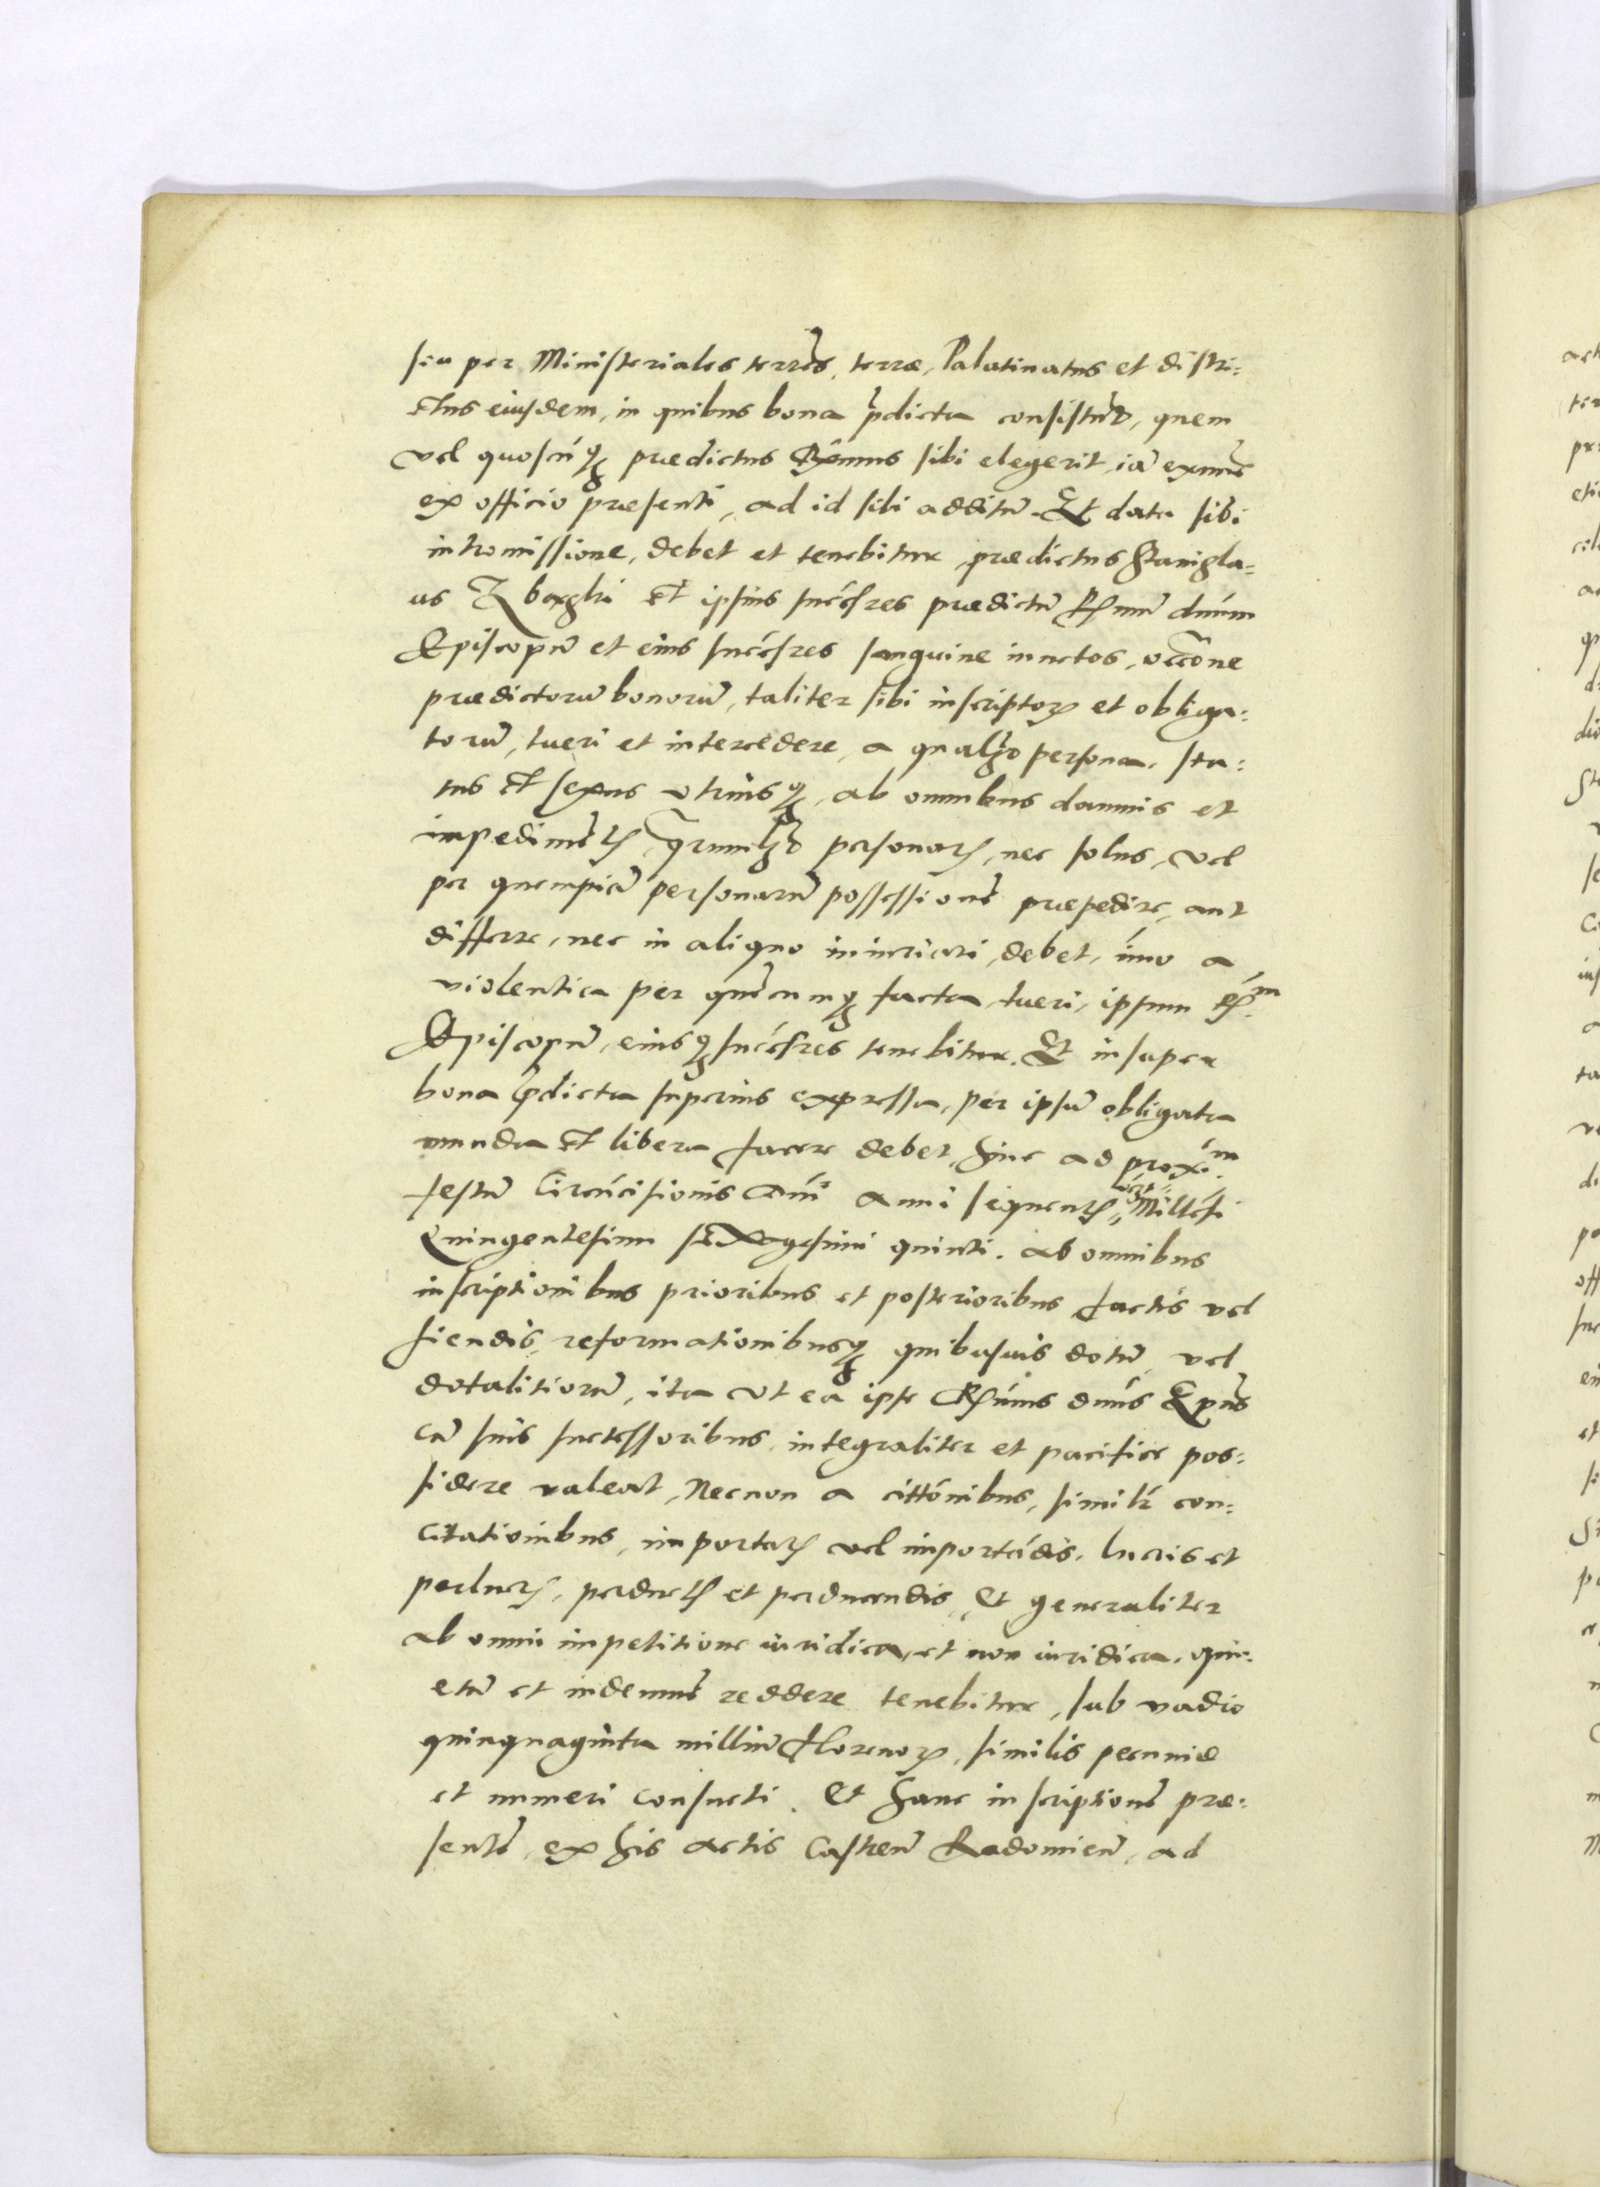 siu per Ministeriales terrẽs, terræ, Palatinatus et distri:
ctus eiusdem, in quibus bona p̃dicta consistũt, quem
vel quoscũq; prædictus Rx̃mus sibi elegerit, iã exnũc
ex officio præsenti, ad id sibi additũ. Et data sibi
intromissione, debet et tenebitur, prædictus Stanisla=
us Zborski et ipsius succ̃sres prædictũ Rſmũ dnũm
Episcopũ et eius succ̃sres sanguine iunctos, occõne
prædictorũ bonorũ, taliter sibi inscriptoꝝ et obliga:
torũ, tueri et intercedere, a qualʒ persona, sta:
tus et sexus utriusq;, ab omnibus damnis et
impedimẽtꝭ, qrumlʒ personarꝭ, nec solus, vel
per quempiã personarũ possessionẽ præpedire, aut
differre, nec in aliquo iniuriari, debet, imo a
violentia per quẽcumq; facta, tueri, ipsum Rſm
Episcopũ, eiusq; succ̃sres tenebitur. Et insuper
bona p̃dicta superius expressa, per ipsũ obligata
munda et libera facere debet, hinc ad prox:m
festũ Circũcisionis Dñi anni sequentꝭ, Millẽsi
Quingentesimi sexagesimi quinti. ab omnibus
inscriptionibus prioribus et posterioribus factis vel
fiendis, reformationibusq; quibusuis dotũ, vel
dotalitiorũ, ita ut ea ipse Rſmus dnũs Ep̃us
cũ suis successoribus, integraliter et pacifice pos:
sidere valeat, Necnon a cittõnibus, similr̃ con:
citationibus, importatꝭ vel importãdis, lucris et
perlucrꝭ, perductꝭ et perducendis, Et generaliter
ab omni impetitione iuridica, et non iuridica, qui:
etũ et indemnẽ reddere tenebitur, sub vadio
quinquaginta milliũ florenoꝝ, similis pecuniæ
et numeri consueti. Et hanc inscriptionẽ præ:
sentẽ, ex his actis Castreñ Radomieñ, ad